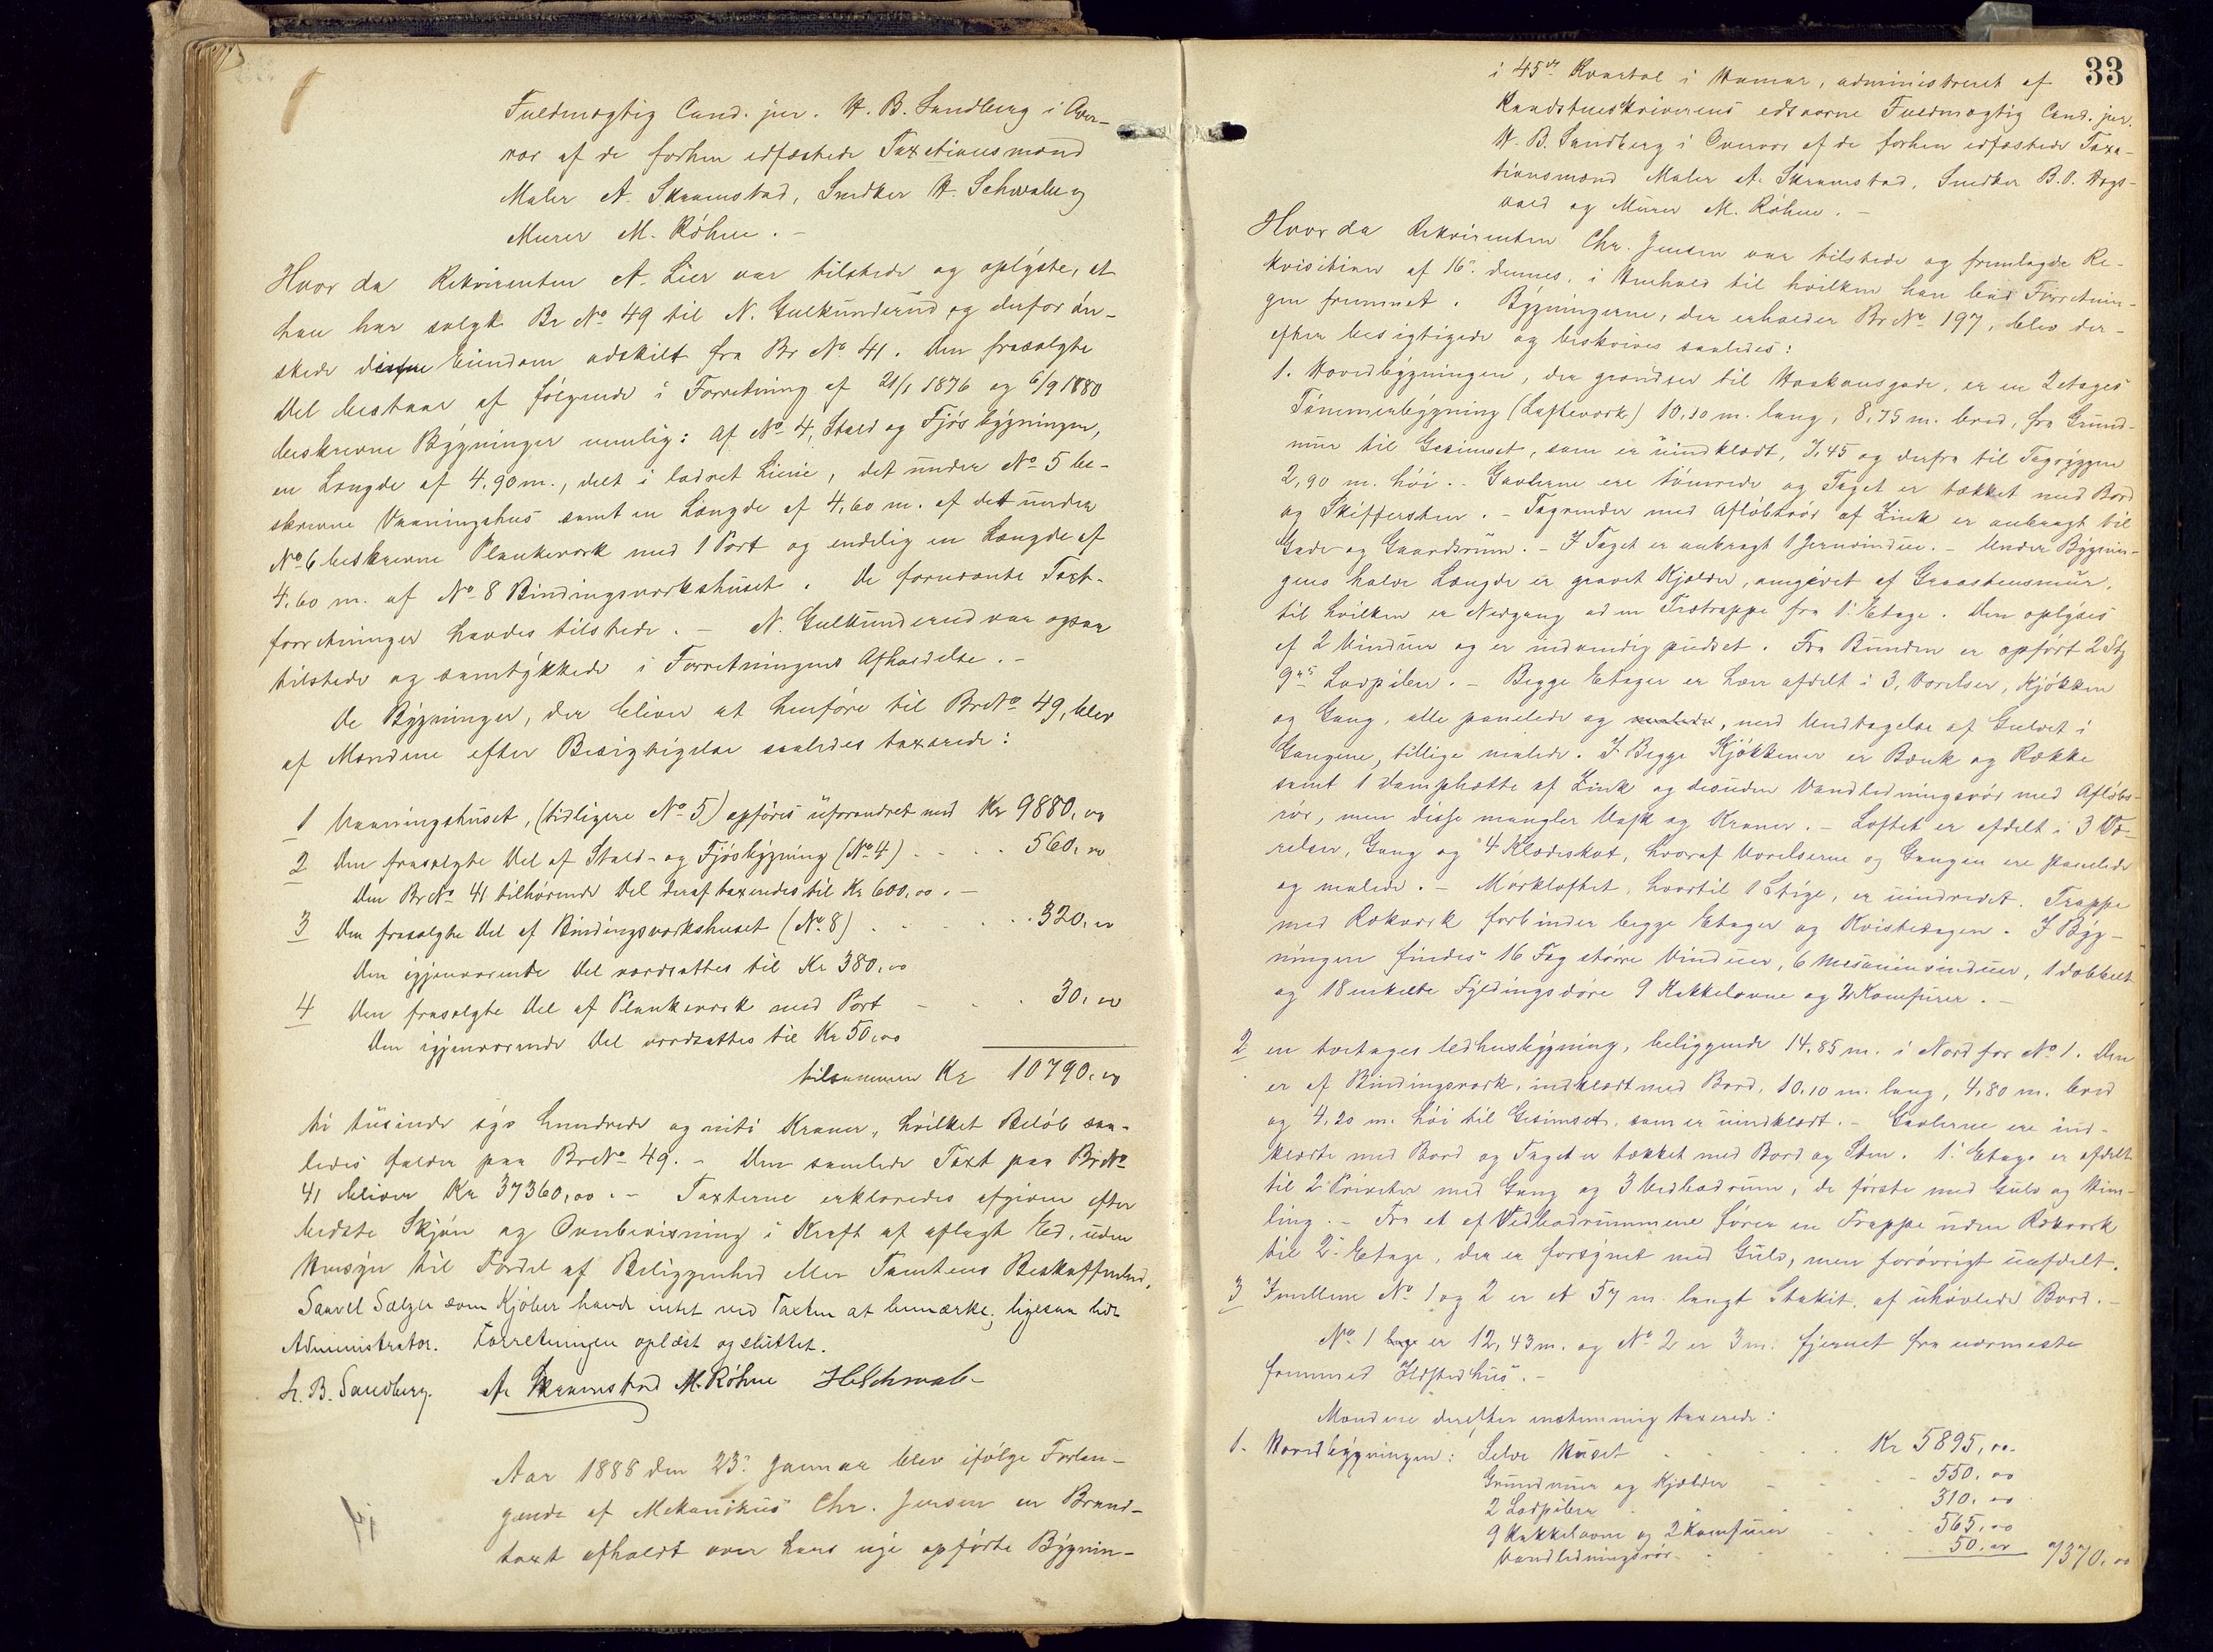 Fuldmægtig Cand. jur. H. B. Sandberg i Over-
vær af de forhen edfæstede Taxationsmænd
Maler A. Skramstad, Snedker H. Schwab og
Murer M. Röhne. -
Hvor da Rekvirenten A. Lier var tilstede og oplyste, at
han har solgt Br № 49 til N. Gulkunderud og derfor øn-
skede disse Eiendom adskilt fra Br № 41. Den frasolgte
Del bestaar af følgende i Forretning af 21/1 1876 og 6/9 1880
beskrevne Bygninger nemlig: Af № 4, Stald og Fjøsbygningen,
en Længde af 4.90 m., delt i lodret Linie, det under № 5 be-
skrevne Vaaningshus samt en Længde af 4,60 m. af det under
№ 6 beskrevne Plankeværk med 1 Port og endelig en Længde af
4.60 m. af № 8 Bindingsverkshuset. De fornævnte Taxt-
forretninger havdes tilstede. - N. Gulkunderud var ogsaa
tilstede og samtykkede i Forretningens Afholdelse. -
De Bygninger, der bliver at henføre til Br № 49, blev
af Mændene efter Besigtigelse saaledes taxerede:
1 Vaaningshuset, (tidligere № 5) opføres uforandret med Kr 9880,00
2 Den frasolgte Del af Stald- og Fjøsbygning (№ 4) . . . 560,00
Den Br № 41 tilhørende Del deraf taxeredes til Kr 600,00. -
3 Den frasolgte Del af Bindingsverkshuset (№ 8) . . . . 320,00
Den igjenværende Del værdsattes til Kr 380,00
4 Den frasolgte Del af Plankeværk med Port - . . 30,00
Den igjenværende Del værdsattes til Kr 50,00
tilsammen Kr 10790,00
ti tusinde syv hundrede og niti Kroner, hvilket Beløb saa-
ledes falder paa Br № 49. - Den samlede Taxt paa Br №
41 bliver Kr 37360,00. - Taxterne erklæredes afgivne efter
bedste Skjøn og Overbevisning i Kraft af aflagt Ed, uden
Hensyn til Fordel af Beliggenhed eller Tomtens Beskaffenhed,
Saavel Sælger som Kjøber havde intet ved Taxten at bemærke, ligesaa lidt
Administrator. Forretningen oplæst og sluttet.
H. B. Sandberg. A. Skramstad M. Röhne H Schwab-
Aar 1888 den 23. Januar blev ifølge Forlan-
gende af Mekanikus Chr. Jensen en Brand-
taxt afholdt over hans nye opførte Bygnin-
33
i 45de Kvartal i Hamar, administreret af
Raadstueskriverens edsvorne Fuldmægtig Cand. jur.
H. B. Sandberg i Overvær af de forhen edfæstede Taxa-
tionsmænd Maler A. Skramstad, Snedker B. O. Hogs-
vold og Murer M. Röhne. -
Hvor da Rekvirenten Chr. Jensen var tilstede og fremlagde Re-
kvisition af 16. dennes, i Henhold til hvilken han bad Forretnin-
gen fremmet. Bygningerne, der erholder Br № 197, blev der-
efter besigtigede og beskrives saaledes:
1. Hovedbygningen, der grændser til Haakonsgade, er en 2etages
Tømmerbygning (Lafteværk) 10,10 m. lang, 8,75 m. bred, fra Grund-
mur til Gesimset, som er uindklædt, 7,45 og derfra til Tagryggen
2,90 m. høi. - Gavlerne ere tømrede og Taget er tækket med Bord
og Skiffersten. - Tagrender med Afløbsrør af Zink er anbragt til
Gade og Gaardsrum. - I Taget er anbragt 1 Jernvindue. - Under Bygnin-
gens halve Længde er gravet Kjælder, omgivet af Graastensmur,
til hvilken er Nedgang ad en Trætrappe fra 1. Etage. Den oplyses
af 2 Vinduer og er indvendig pudset. Fra Bunden er opført 2 Stk
9" Lodpiber. - Begge Etager er hver afdelt i 3 Værelser, Kjøkken
og Gang, alle panelede og malede, med Undtagelse af Gulvet i
Gangene, tillige malede. I Begge Kjøkkener er Bænk og Række
samt 1 Damphætte af Zink og desuden Vandledningsrør med Afløbs-
rør, men disse mangler Vask og Kraner. - Loftet er afdelt i 3 Væ-
relser, Gang og 4 Klædeskot, hvoraf Værelserne og Gangen ere panelede
og malede. - Mørkloftet, hvortil 1 Stige, er uindredet. Trappe
med Rækværk forbinder begge Etager og Kvistetagen. I Byg-
ningen findes 16 Fag større Vinduer, 6 Mesaninvinduer, 1 dobbelt
og 18 enkelte Fyldingsdøre 9 Kakkelovne og 2 Komfurer. -
2 en toetages Vedhusbygning, beliggende 14,85 m. i Nord for № 1. Den
er af Bindingsværk, indklædt med Bord, 10,10 m. lang, 4,80 m. bred
og 4,20 m. høi til Gesimset, som er uindklædt. - Gavlerne ere ind-
klædte med Bord og Taget er tækket med Bord og Sten. 1. Etage er afdelt
til 2 Priveter med Gang og 3 Vedbodrum, de første med Gulv og Him-
ling. - Fra et af Vedbodrummene fører en Trappe uden Rækværk
til 2. Etage, der er forsynet med Gulv, men forøvrigt uafdelt.
3 Imellem № 1 og 2 er et 57 m. langt Stakit, af uhøvlede Bord. -
№ 1 er 12,43 m. og № 2 er 3 m. fjernet fra nærmeste
fremmed Ildstedhus. -
Mændene derefter enstemmig taxerede:
1. Hovedbygningen: Selve Huset . . . . Kr 5895,00.
Grundmur og Kjælder - . . . 550,00
2 Lodpiber . . . . 310,00
9 Kakkelovne og 2 Komfurer . . . 565,00
Vandledningsrør . . . 50,00 7370,00